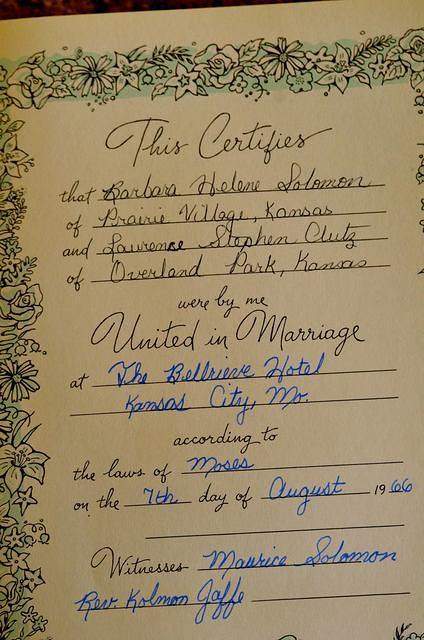 This Certifies
that Barbara Helene Solomon
of Prairie Village, Kansas
and Laurence Stephen Clutz
of Overland Park, Kansas
were by me
United in Marriage
at The Bellrieve Hotel
Kansas City, Mo.
according to
the laws of Moses
on the 7th day of August 1966
Witnesses Maurice Solomon
Rev. Kolmon Jaffe